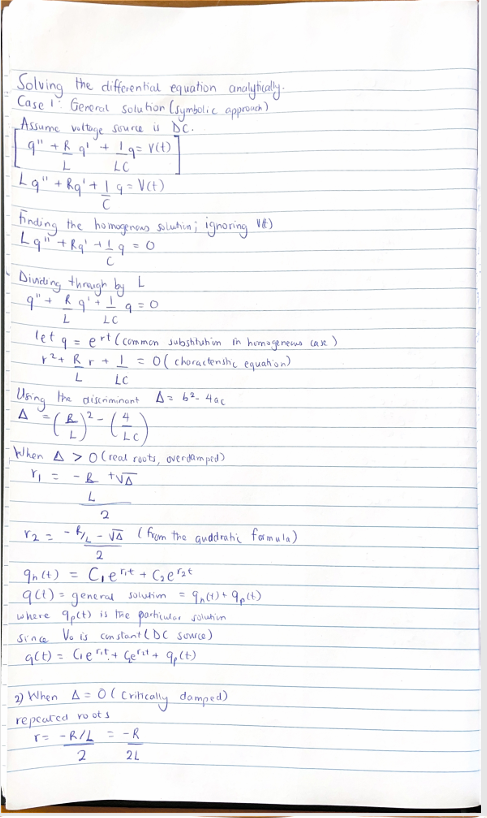 Solving the differential equation analytically.
Case 1: General solution (symbolic approach)
Assume voltage source is DC.
[q'' + R/L q' + 1/LC q = V(t)]
Lq'' + Rq' + 1/C q = V(t)
finding the homogenous solution; ignoring V(t)
Lq'' + Rq' + 1/C q = 0
Dividing through by L
q'' + R/L q' + 1/LC q = 0
let q = e^rt (common substitution in homogeneous case)
r² + R/L r + 1/LC = 0 (characteristic equation)
Using the discriminant Δ = b² - 4ac
Δ = (R/L)² - (4/LC)
When Δ > 0 (real roots, overdamped)
r₁ = (-R/L + √Δ)/2
r₂ = (-R/L - √Δ)/2 (from the quadratic formula)
qₕ(t) = C₁e^r₁t + C₂e^r₂t
q(t) = general solution = qₕ(t) + qₚ(t)
where qₚ(t) is the particular solution
since V₀ is constant (DC source)
q(t) = C₁e^r₁t + C₂e^r₂t + qₚ(t)
2) When Δ = 0 (critically damped)
repeated roots
r = (-R/L)/2 = -R/2L